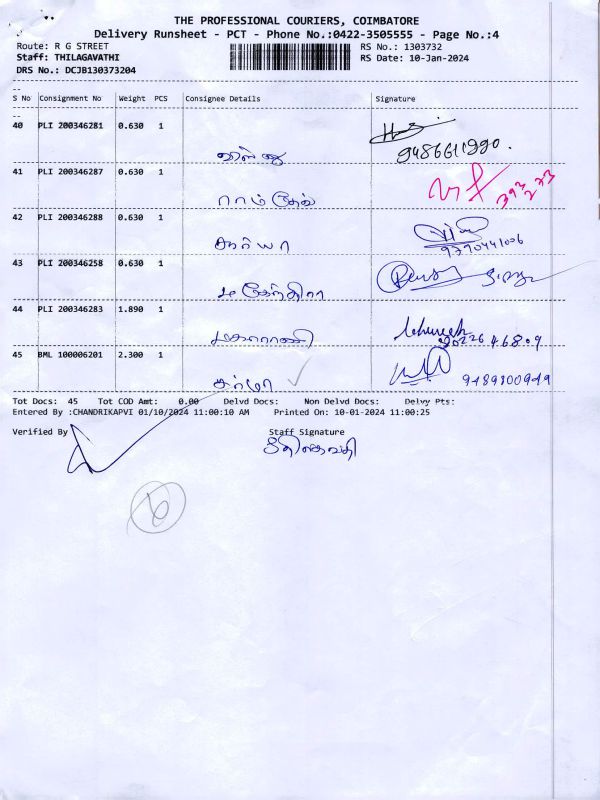 THE PROFESSIONAL COURIERS, COIMBATORE
Delivery Runsheet - PCT - Phone No.:0422-3505555 - Page No.:4
Route: R G STREET RS No.: 1303732
Staff: THILAGAVATHI RS Date: 10-Jan-2024
DRS No.: DCJB130373204
S No Consignment No Weight PCS Consignee Details Signature
40 PLI 200346281 0.630 1
9486611990.
41 PLI 200346287 0.630 1
ராம்தேவ்
42 PLI 200346288 0.630 1
சூர்யா 9790441006
43 PLI 200346258 0.630 1
மகேந்திரா
44 PLI 200346283 1.890 1
மகாராணி
45 BML 100006201 2.300 1
சுர்மா 9489100949
Tot Docs: 45 Tot COD Amt: 0.00 Delvd Docs: Non Delvd Docs: Delvy Pts:
Entered By :CHANDRIKAPVI 01/10/2024 11:00:10 AM Printed On: 10-01-2024 11:00:25
Verified By Staff Signature
6